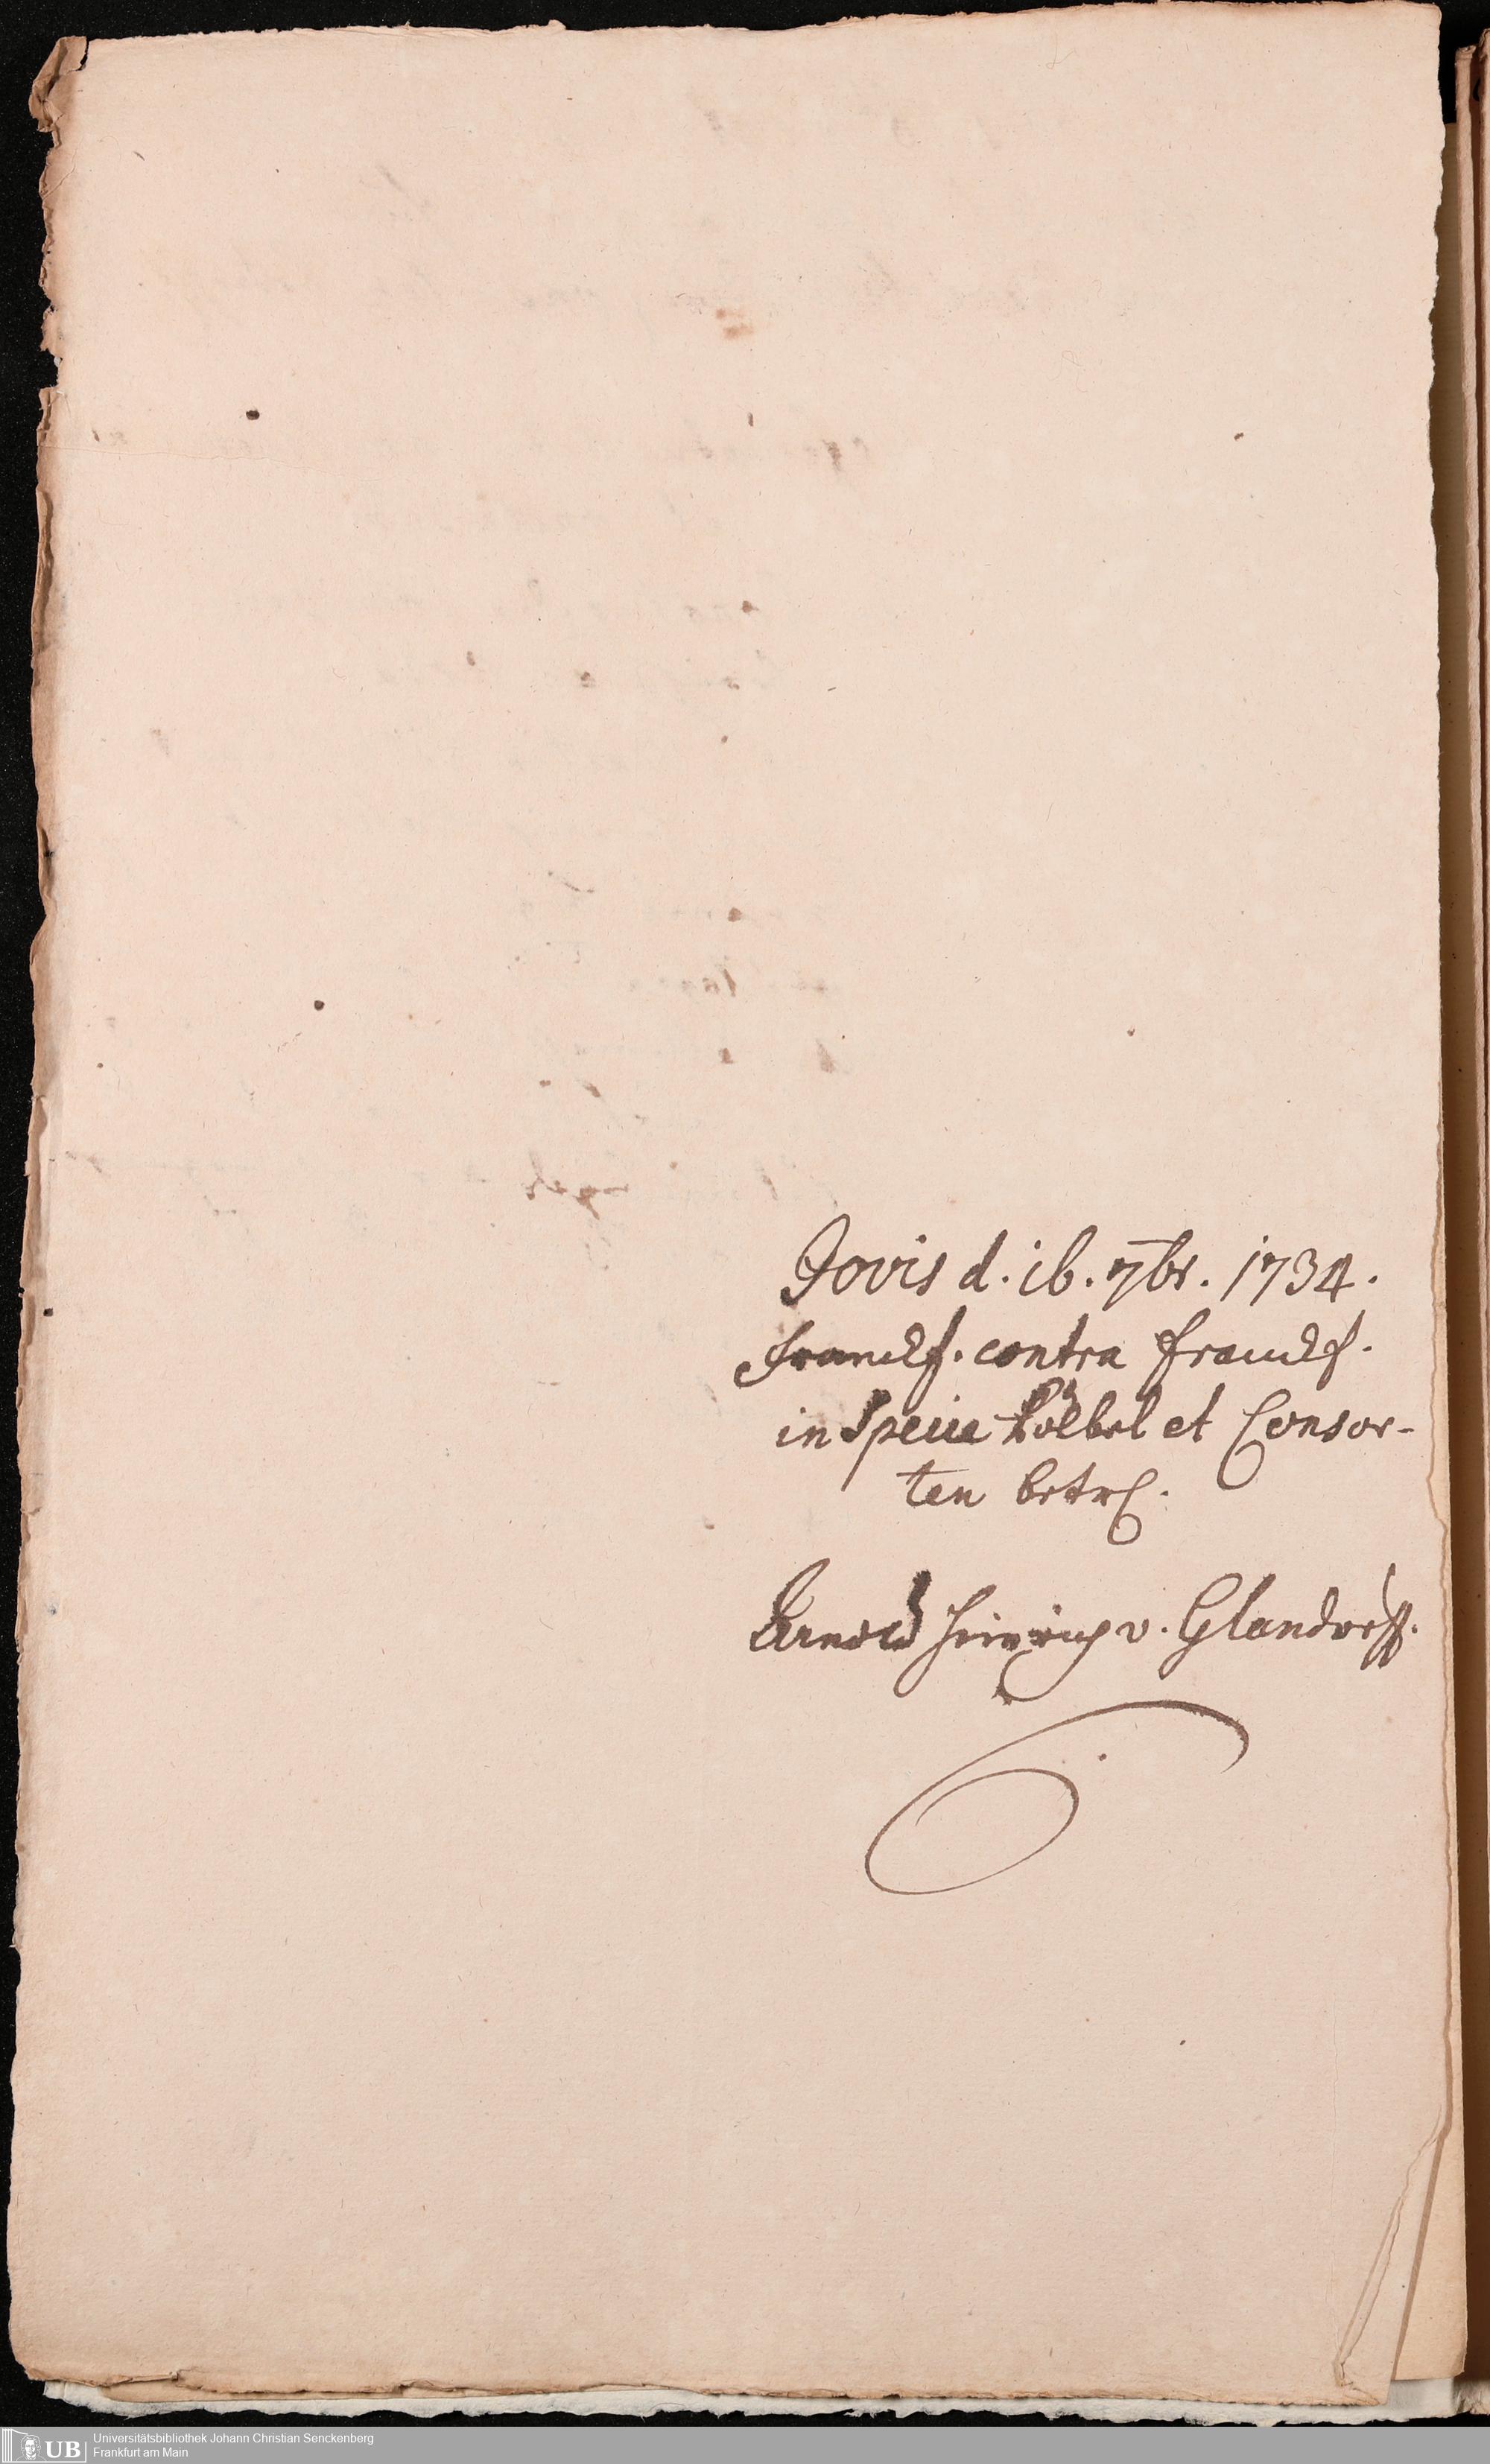 Jovis d. 16. 7br. 1734.
Franckf. contra Franckf.
in specie Kölbel et Consor-
ten betrf.
Arnold Heinrich v. Glandorff.
UB
Universitätsbibliothek Johann Christian Senckenberg
Frankfurt am Main